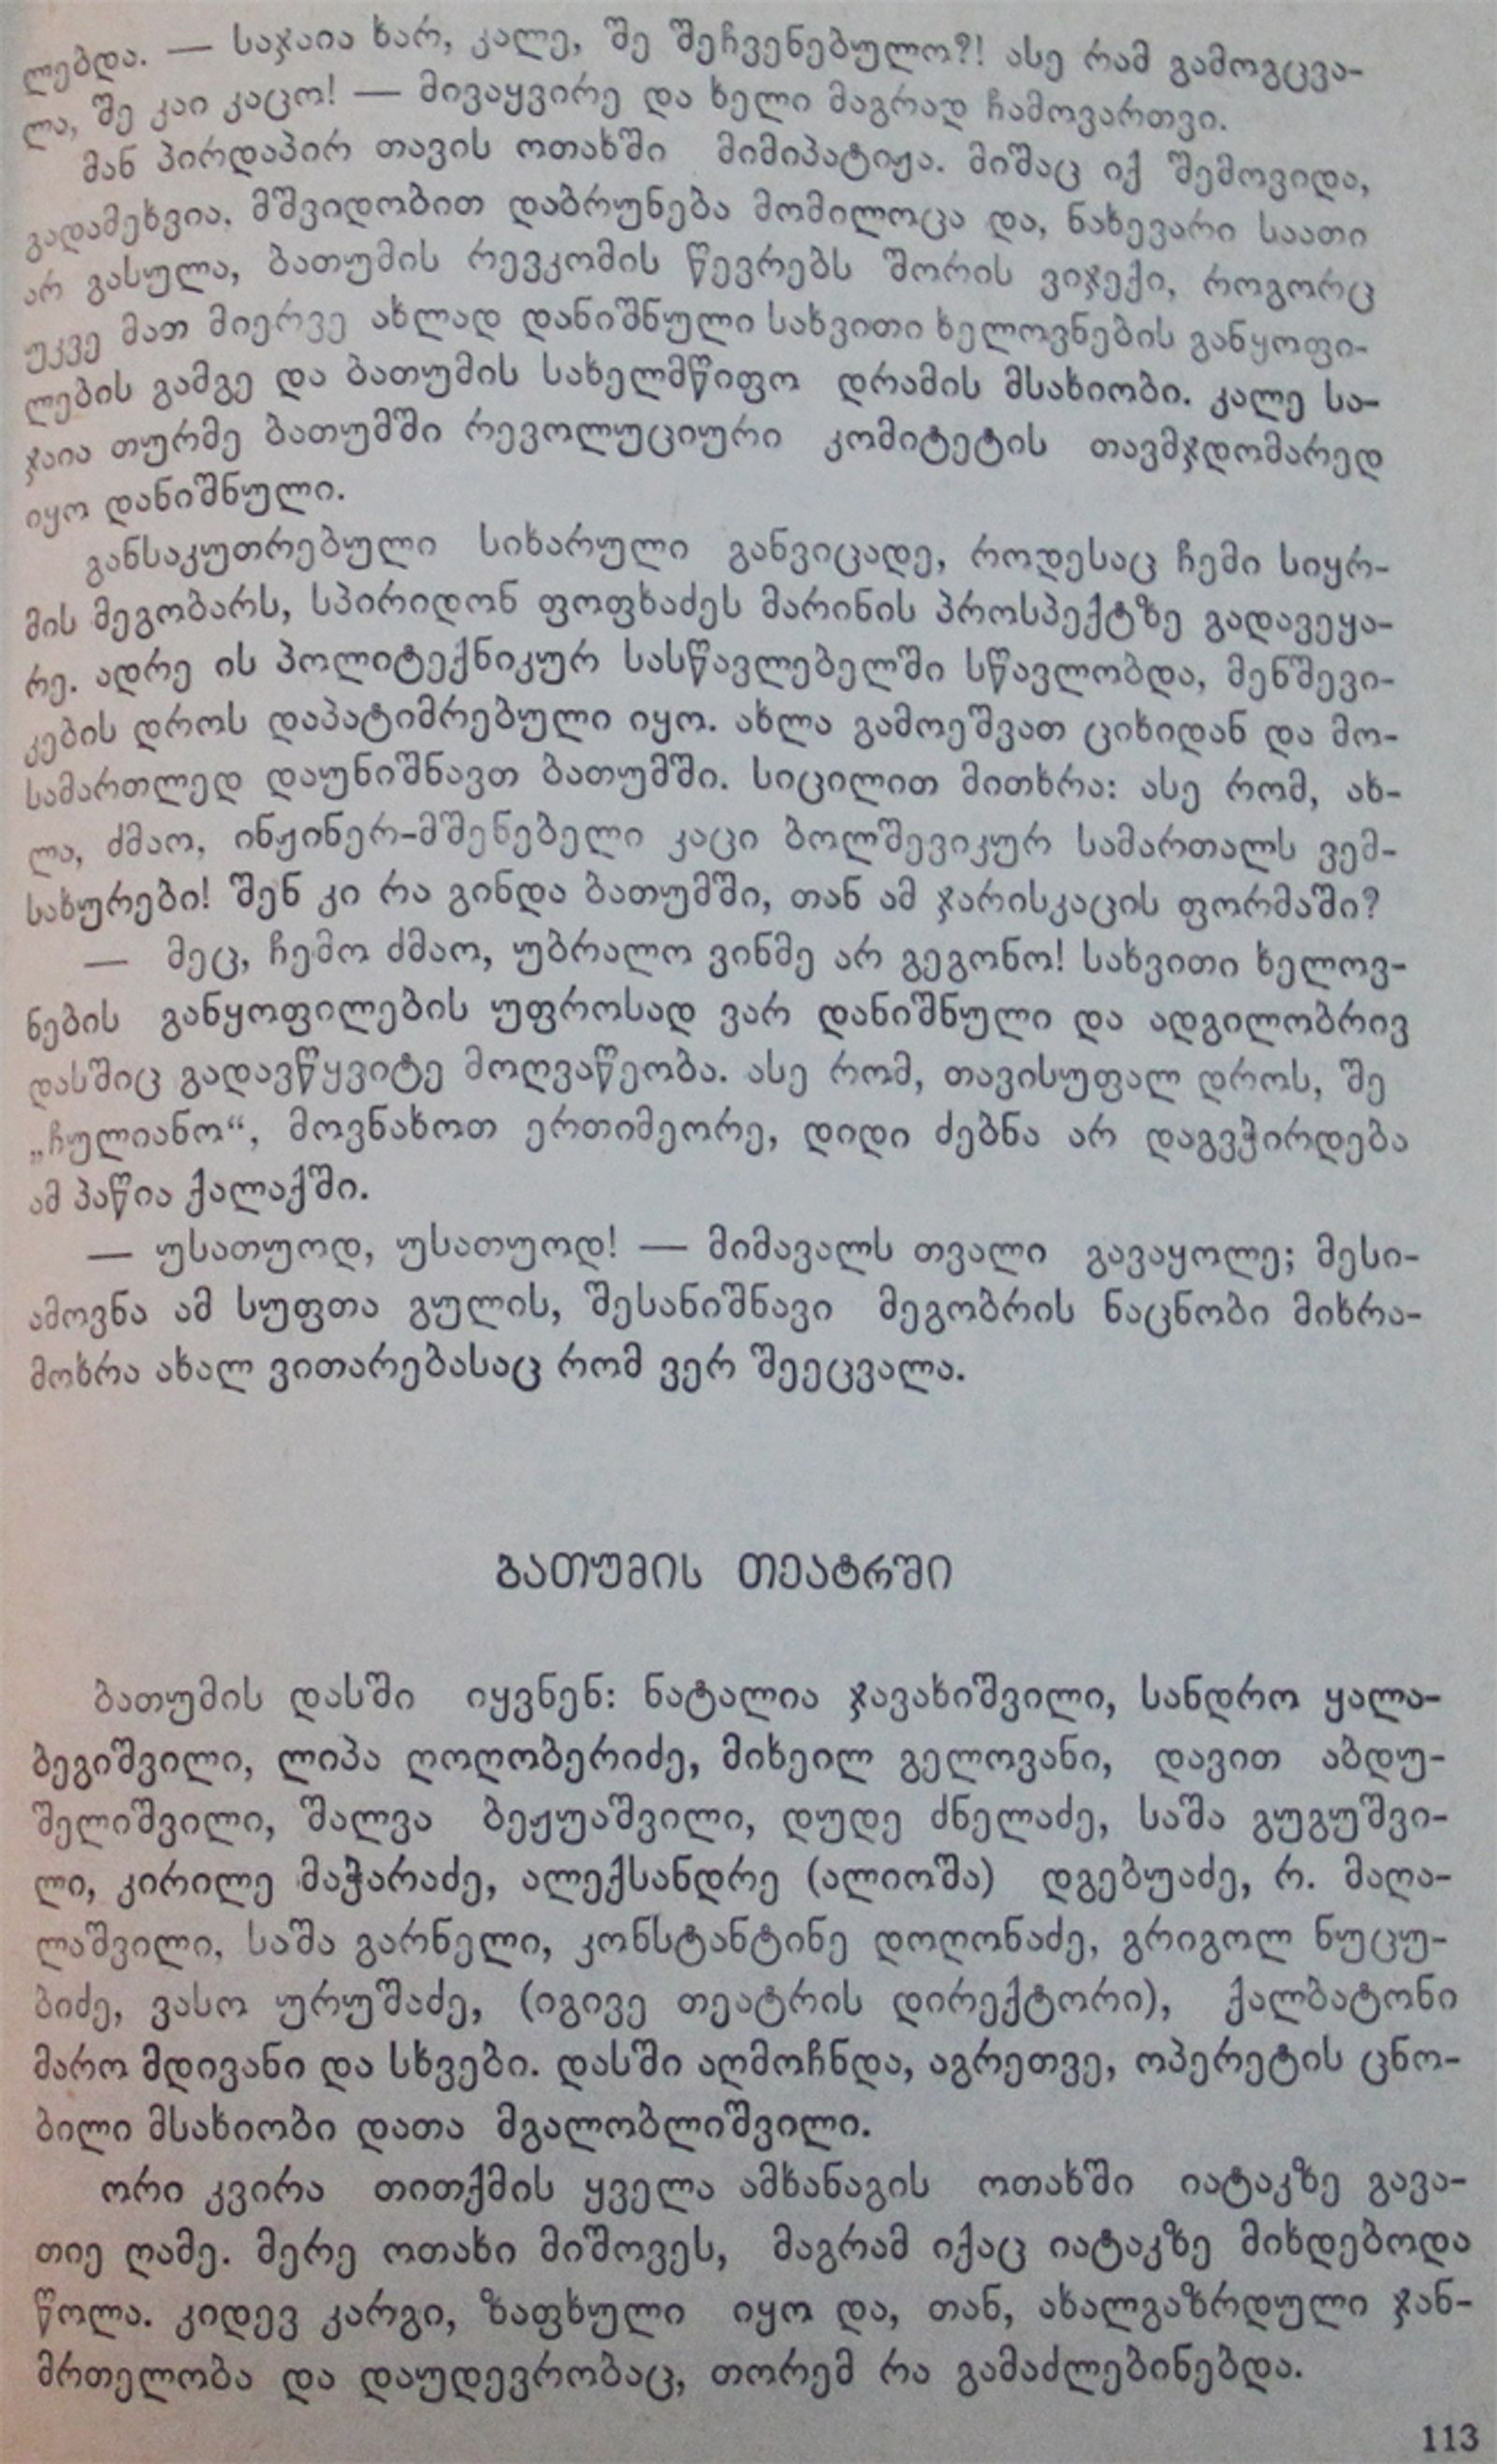 ლებდა. — საჯაია ხარ, კალე, შე შეჩვენებულო?! ასე რამ გამოგცვა-
ლა, შე კაი კაცო! — მივაყვირე და ხელი მაგრად ჩამოვართვი.
მან პირდაპირ თავის ოთახში მიმიპატიჟა. მიშაც იქ შემოვიდა,
გადამეხვია, მშვიდობით დაბრუნება მომილოცა და, ნახევარი საათი
არ გასულა, ბათუმის რევკომის წევრებს შორის ვიჯექი, როგორც
უკვე მათ მიერვე ახლად დანიშნული სახვითი ხელოვნების განყოფი-
ლების გამგე და ბათუმის სახელმწიფო დრამის მსახიობი. კალე სა-
ჯაია თურმე ბათუმში რევოლუციური კომიტეტის თავმჯდომარედ
იყო დანიშნული.
განსაკუთრებული სიხარული განვიცადე, როდესაც ჩემი სიყრ-
მის მეგობარს, სპირიდონ ფოფხაძეს მარინის პროსპექტზე გადავეყა-
რე. ადრე ის პოლიტექნიკურ სასწავლებელში სწავლობდა, მენშევი-
კების დროს დაპატიმრებული იყო. ახლა გამოეშვათ ციხიდან და მო-
სამართლედ დაუნიშნავთ ბათუმში. სიცილით მითხრა: ასე რომ, ახ-
ლა, ძმაო, ინჟინერ-მშენებელი კაცი ბოლშევიკურ სამართალს ვემ-
სახურები! შენ კი რა გინდა ბათუმში, თან ამ ჯარისკაცის ფორმაში?
— მეც, ჩემო ძმაო, უბრალო ვინმე არ გეგონო! სახვითი ხელოვ-
ნების განყოფილების უფროსად ვარ დანიშნული და ადგილობრივ
დასშიც გადავწყვიტე მოღვაწეობა. ასე რომ, თავისუფალ დროს, შე
„ჩულიანო“, მოვნახოთ ერთიმეორე, დიდი ძებნა არ დაგვჭირდება
ამ პაწია ქალაქში.
— უსათუოდ, უსათუოდ! — მიმავალს თვალი გავაყოლე; მესი-
ამოვნა ამ სუფთა გულის, შესანიშნავი მეგობრის ნაცნობი მიხრა-
მოხრა ახალ ვითარებასაც რომ ვერ შეეცვალა.
ბათუმის თეატრში
ბათუმის დასში იყვნენ: ნატალია ჯავახიშვილი, სანდრო ყალა-
ბეგიშვილი, ლიპა ღოღობერიძე, მიხეილ გელოვანი, დავით აბდუ-
შელიშვილი, შალვა ბეჟუაშვილი, დუდე ძნელაძე, საშა გუგუშვი-
ლი, კირილე მაჭარაძე, ალექსანდრე (ალიოშა) დგებუაძე, რ. მაღა-
ლაშვილი, საშა გარნელი, კონსტანტინე დოღონაძე, გრიგოლ ნუცუ-
ბიძე, ვასო ურუშაძე, (იგივე თეატრის დირექტორი), ქალბატონი
მარო მდივანი და სხვები. დასში აღმოჩნდა, აგრეთვე, ოპერეტის ცნო-
ბილი მსახიობი დათა მგალობლიშვილი.
ორი კვირა თითქმის ყველა ამხანაგის ოთახში იატაკზე გავა-
თიე ღამე. მერე ოთახი მიშოვეს, მაგრამ იქაც იატაკზე მიხდებოდა
წოლა. კიდევ კარგი, ზაფხული იყო და, თან, ახალგაზრდული ჯან-
მრთელობა და დაუდევრობაც, თორემ რა გამაძლებინებდა.
113